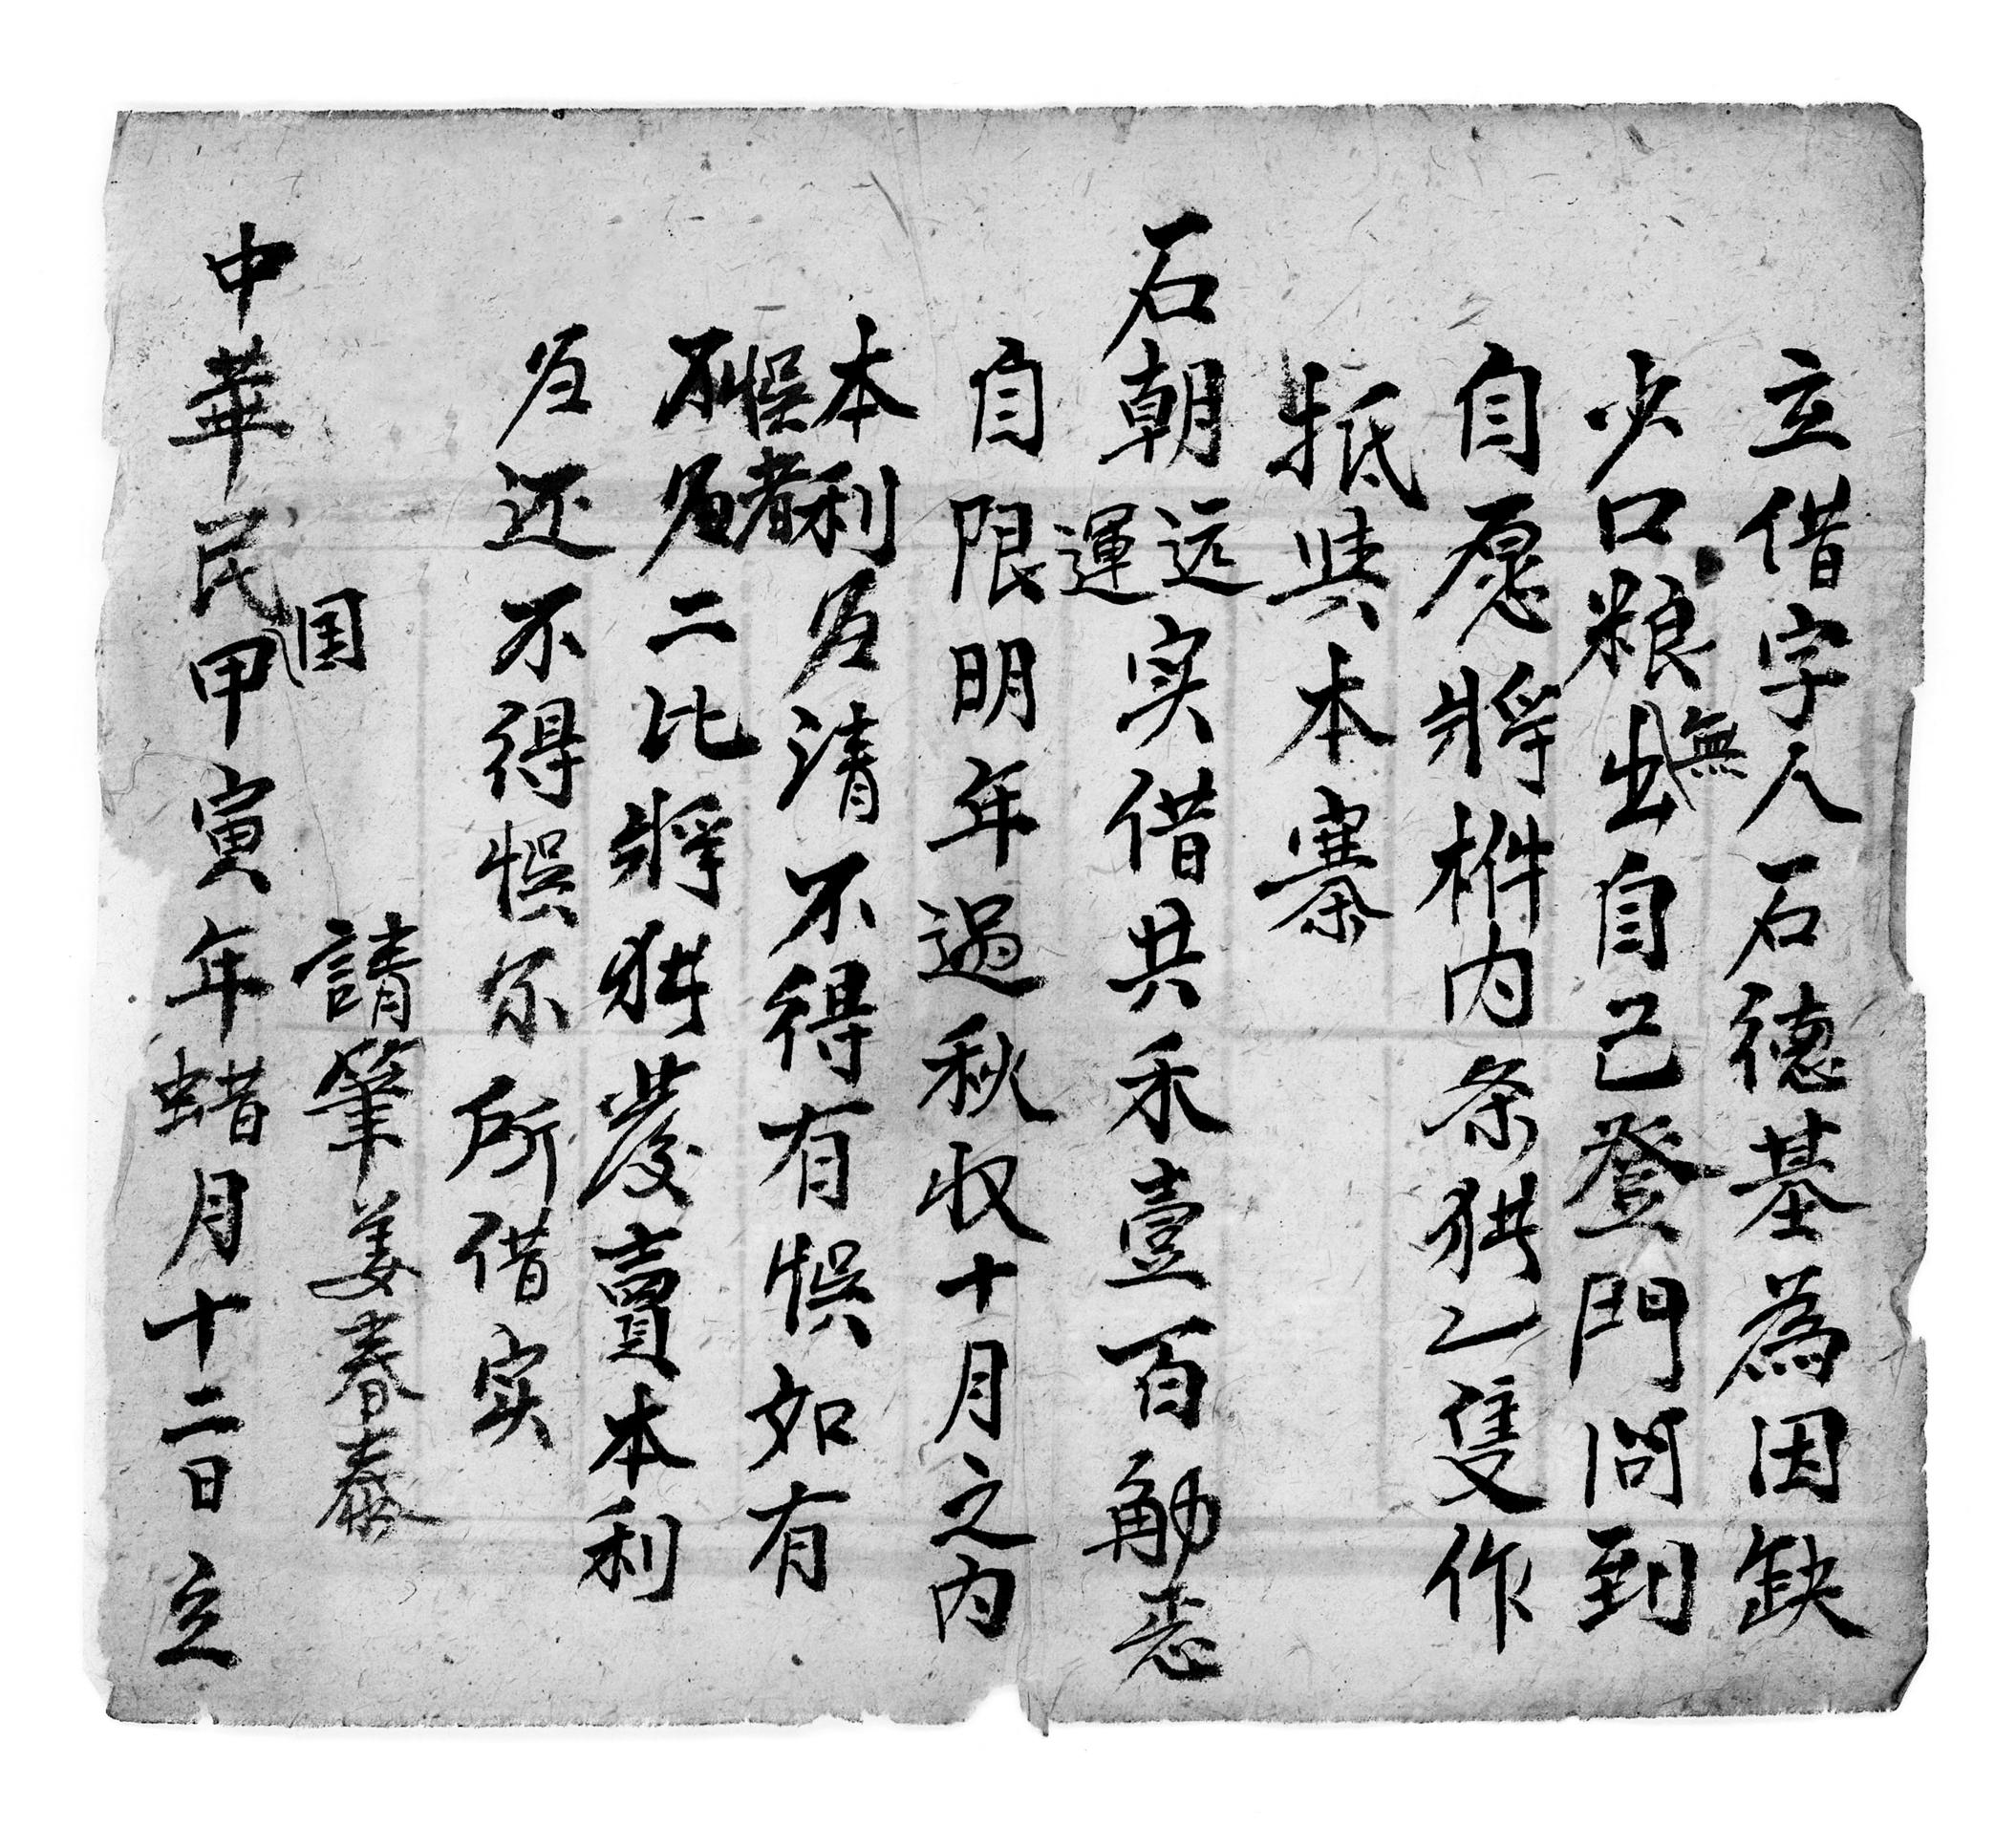 立借字人石德基為因缺
少口粮無出自己登門問到
自愿將内条㹧乙隻作
抵典本寨
石朝远運实借共禾壹百觔悉
自限明年過秋收十月之内
本利清不得有悮如有
悮者
不二比將㹧發賣本利
还不得悮尔所借实
請筆姜春泰
中華民国甲寅年蜡月十二日立